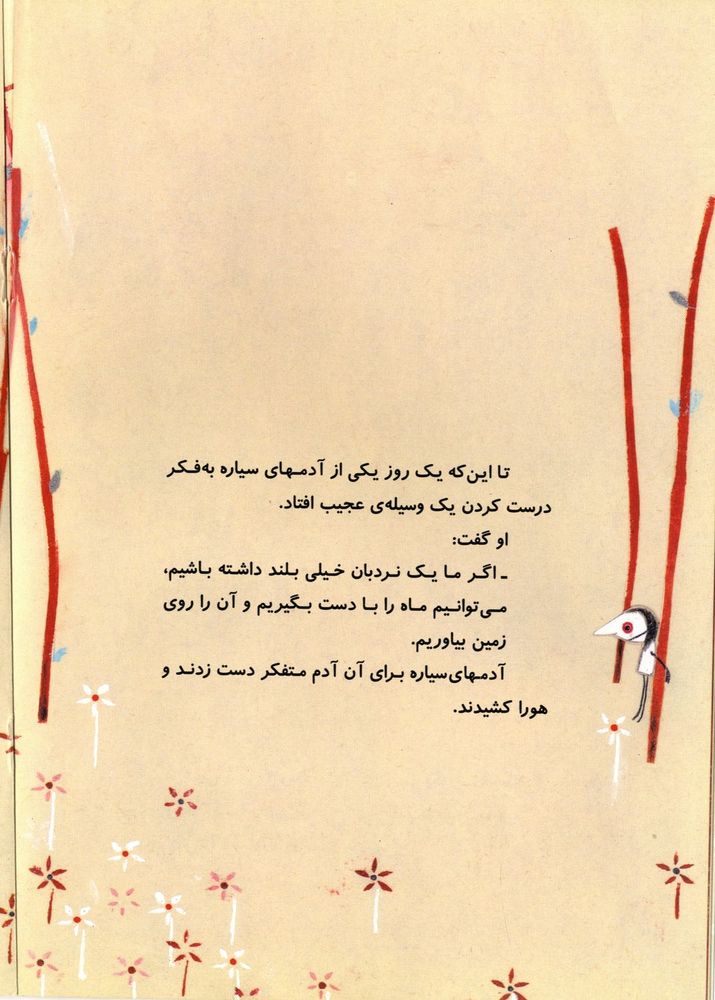 تا این‌که یک روز یکی از آدمهای سیاره به‌فکر
درست کردن یک وسیله‌ی عجیب افتاد.
او گفت:
ـ اگر ما یک نردبان خیلی بلند داشته باشیم،
می‌توانیم ماه را با دست بگیریم و آن را روی
زمین بیاوریم.
آدمهای‌سیاره برای آن آدم متفکر دست زدند و
هورا کشیدند.